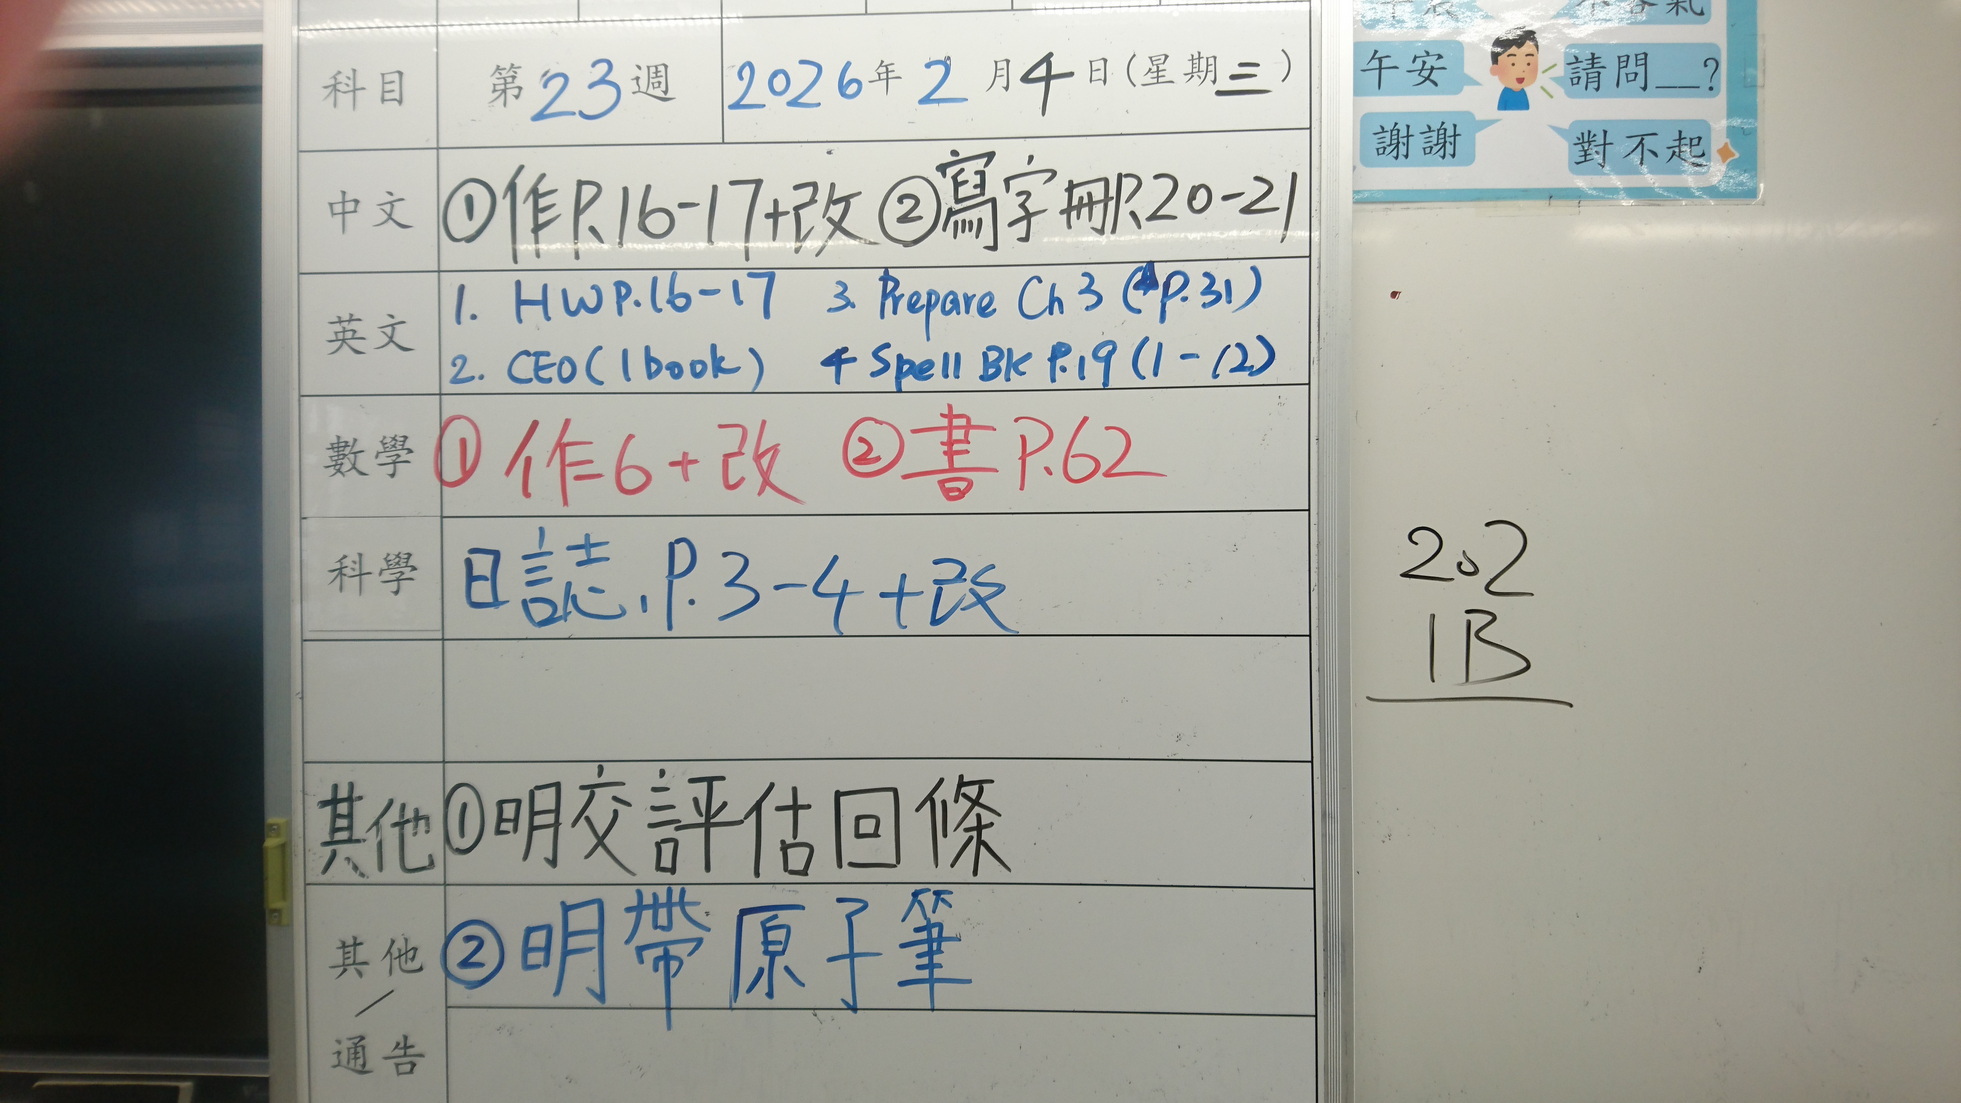 科目 第23週 2026年2月4日(星期三)
中文 ①作P.16-17+改 ②寫字冊P.20-21
英文 1. HW P.16-17 3. Prepare Ch 3 (P.31)
2. CEO (1 book) 4 Spell BK P.19 (1-12)
數學 ①作6+改 ②書P.62
科學 日誌,P.3-4+改
其他 ①明交評估回條
其他/通告 ②明帶原子筆
午安
請問__?
謝謝
對不起
202
1B